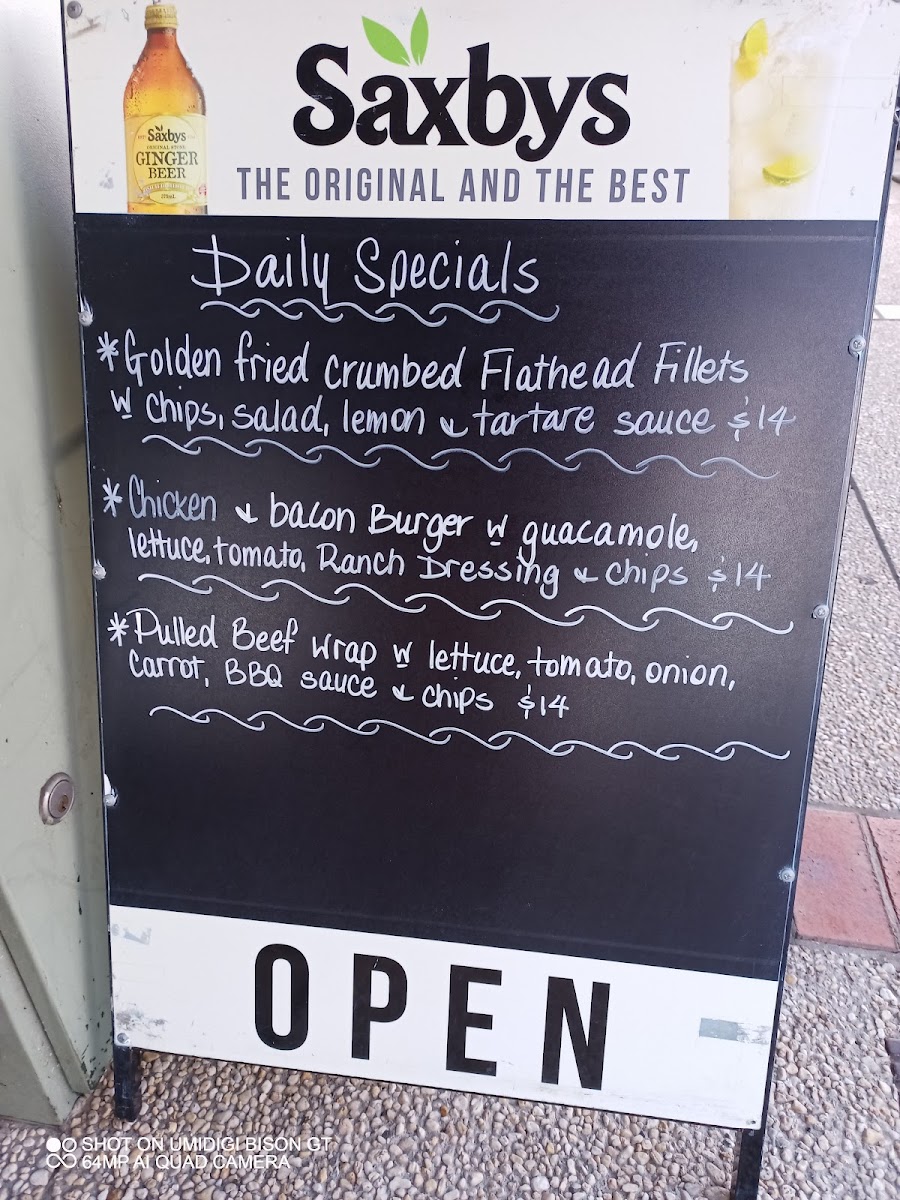 Saxbys
THE ORIGINAL AND THE BEST
Saxbys
GINGER
BEER
Daily Specials
*Golden fried crumbed Flathead Fillets
w chips, salad, lemon & tartare sauce $14
*Chicken & bacon Burger w guacamole,
lettuce, tomato, Ranch Dressing & chips $14
*Pulled Beef wrap w lettuce, tomato, onion,
carrot, BBQ sauce & chips $14
OPEN
SHOT ON UMIDIGI BISON GT
64MP AI QUAD CAMERA